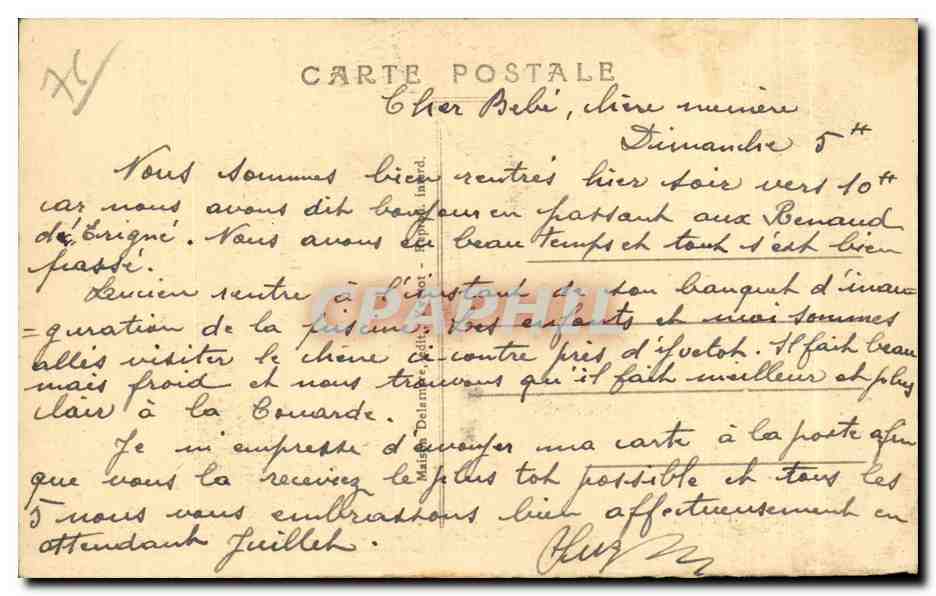 76
CARTE POSTALE
Cher Bébé, chère mémère
Dimanche 5 H
Nous sommes bien rentrés hier soir vers 10 H
car nous avons dit bonjour en passant aux Renaud
de Erigné. Nous avons eu beau temps et tout s'est bien
passé.
Lucien rentre à l'instant de son banquet d'inau-
=guration de la piscine. Les enfants et moi sommes
allés visiter le chêne ci-contre près d'Yvetot. Il fait beau
mais froid et nous trouvons qu'il fait meilleur et plus
clair à la Couarde.
Je m'empresse d'envoyer ma carte à la poste afin
que vous la receviez le plus tot possible et tous les
5 nous vous embrassons bien affectueusement en
attendant Juillet.
Maison Delamare, édit., Yvetot - Reprod. interd.
CPAPHIL